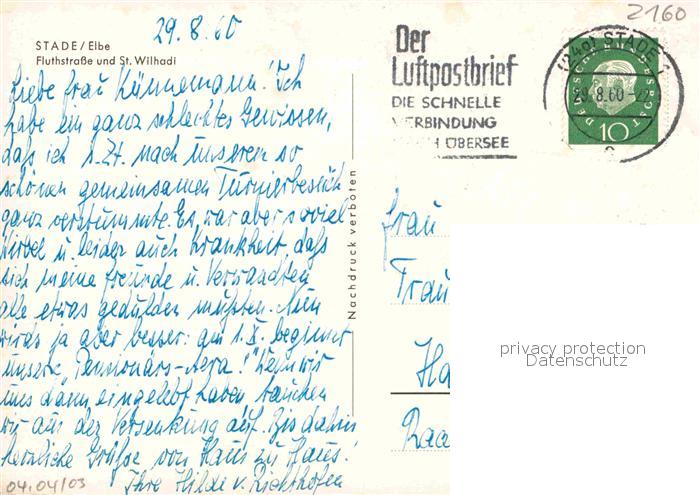 2160
29.8.60
STADE / Elbe
Fluthstraße und St. Wilhadi
Liebe Frau Künnemann! Ich
habe ein ganz schlechtes Gewissen,
daß ich s. Zt. nach unserem so
schönen gemeinsamen Turnierbesuch
ganz verstummte. Es war aber so viel
Wirbel u. leider auch Krankheit daß
sich meine Freunde u. Verwandten
alle etwas gedulden mußten. Nun
wirds ja aber besser: am 1.X. beginnt
unsere "Pensionärs-Aera!" Wenn wir
uns dann eingelebt haben tauchen
wir aus der Versenkung auf. Bis dahin
herzliche Grüße von Haus zu Haus!
Ihre Hilde v. Richthofen
04.04/03
Nachdruck verboten
Der
Luftpostbrief
DIE SCHNELLE
VERBINDUNG
NACH ÜBERSEE
(24a) STADE
29.8.60
DEUTSCHE BUNDESPOST
10
Frau
Trau
Ha
Raa
privacy protection
Datenschutz